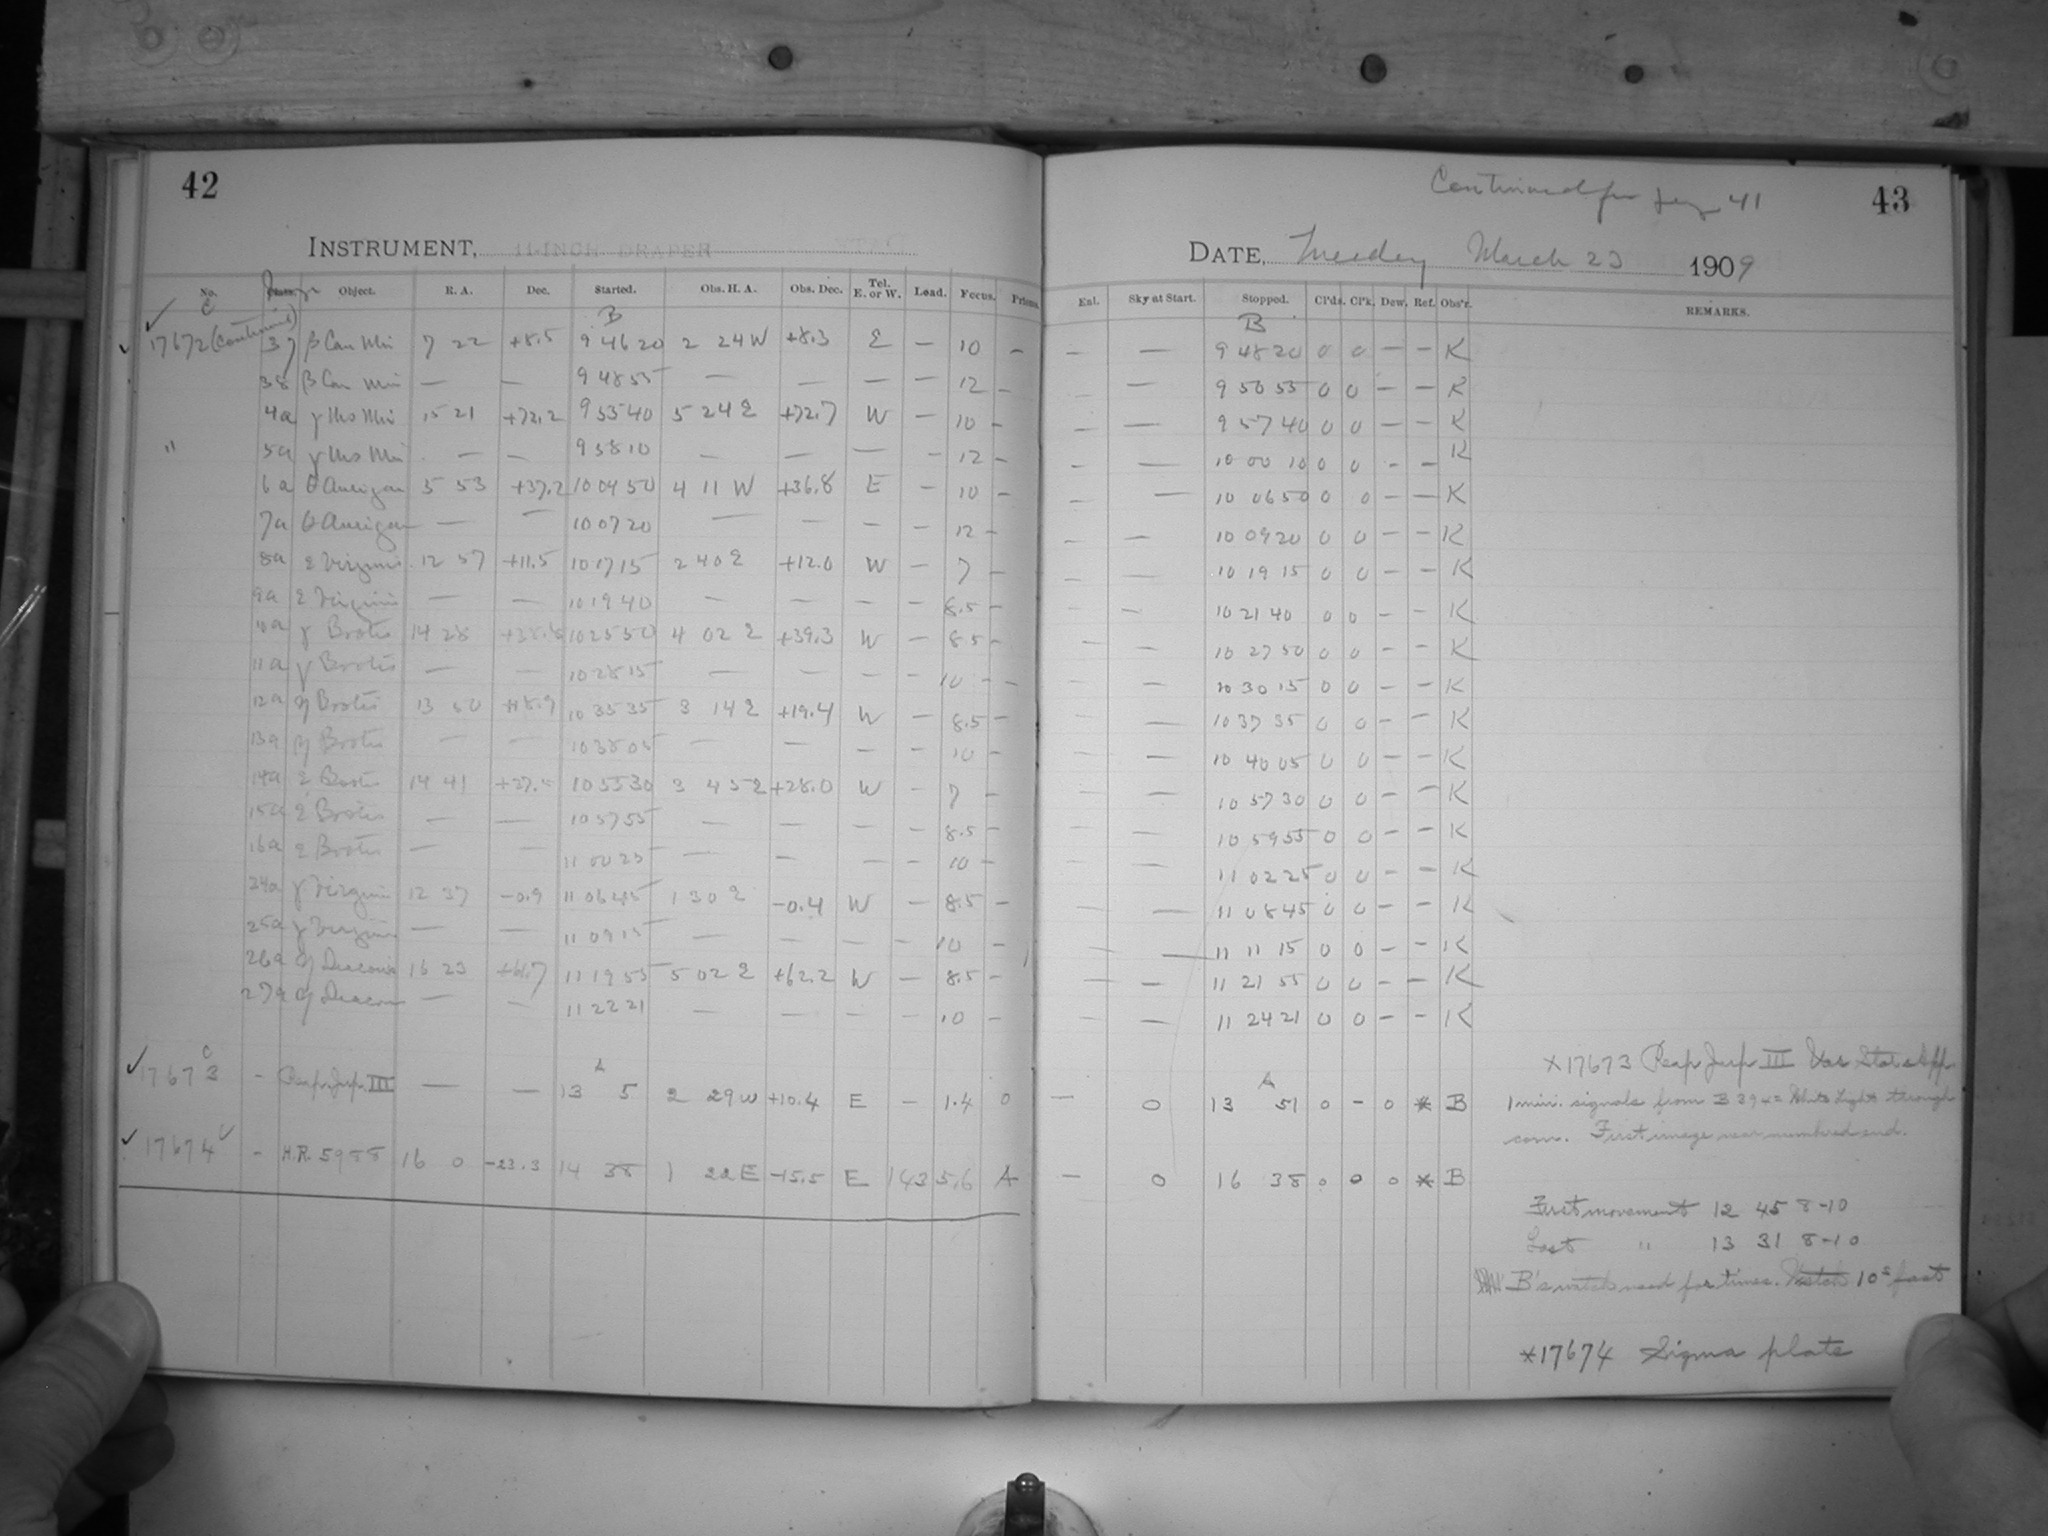 42
INSTRUMENT, 11-INCH DRAPER
No. Object. R. A. Dec. Started. Obs. H. A. Obs. Dec. Tel. E. or W. Load. Focus. Prisms.
C B
17672 37 β Can Min 7 22 +8.5 9 46 20 2 24 W +8.3 E — 10 —
38 β Can Min — — 9 48 55 — — — — 12 —
4a γ Urs Min 15 21 +72.2 9 55 40 5 24 E +72.7 W — 10 —
" 5a γ Urs Min — — 9 58 10 — — — — 12 —
6a θ Aurigae 5 53 +37.2 10 04 50 4 11 W +36.8 E — 10 —
7a θ Aurigae — — 10 07 20 — — — — 12 —
8a ε Virginis 12 57 +11.5 10 17 15 2 40 E +12.0 W — 7 —
9a ε Virginis — — 10 19 40 — — — — 8.5 —
10a γ Bootis 14 28 +38.8 10 25 50 4 02 E +39.3 W — 8.5 —
11a γ Bootis — — 10 28 15 — — — — 10 —
12a η Bootis 13 50 +18.9 10 35 35 3 14 E +19.4 W — 8.5 —
13a η Bootis — — 10 38 05 — — — — 10 —
14a ε Bootis 14 41 +27.5 10 55 30 3 45 E +28.0 W — 7 —
15a ε Bootis — — 10 57 55 — — — — 8.5 —
16a ε Bootis — — 11 00 25 — — — — 10 —
24a γ Virginis 12 37 -0.9 11 06 45 1 30 E -0.4 W — 8.5 —
25a γ Virginis — — 11 09 15 — — — — 10 —
26a η Draconis 16 23 +61.7 11 19 55 5 02 E +62.2 W — 8.5 —
27a η Draconis — — 11 22 21 — — — — 10 —
C A
17673 - Reap. Jup. III — — 13 5 2 29 W +10.4 E — 1.4 0
17674 C - H.R. 5988 16 0 -23.3 14 38 1 22 E -15.5 E 143 5.6 A
Continued fr 41
43
DATE, Tuesday March 23 1909
Enl. Sky at Start. Stopped. Cl'ds. Cl'k. Dew. Ref. Obs'r. REMARKS.
B
— — 9 48 20 0 0 — — K
— — 9 50 55 0 0 — — K
— — 9 57 40 0 0 — — K
— — 10 00 10 0 0 — — K
— — 10 06 50 0 0 — — K
— — 10 09 20 0 0 — — K
— — 10 19 15 0 0 — — K
— — 10 21 40 0 0 — — K
— — 10 27 50 0 0 — — K
— — 10 30 15 0 0 — — K
— — 10 37 35 0 0 — — K
— — 10 40 05 0 0 — — K
— — 10 57 30 0 0 — — K
— — 10 59 55 0 0 — — K
— — 11 02 25 0 0 — — K
— — 11 08 45 0 0 — — K
— — 11 11 15 0 0 — — K
— — 11 21 55 0 0 — — K
— — 11 24 21 0 0 — — K
A
— 0 13 51 0 - 0 * B
— 0 16 38 0 0 0 * B
*17673 Reap Jup III
1 min. signals from B 394 = White Light through
corr. First image near numbered end.
First movement 12 45 8-10
Last " 13 31 8-10
B's watch used for times. Watch 10s fast
*17674 Sigma plate